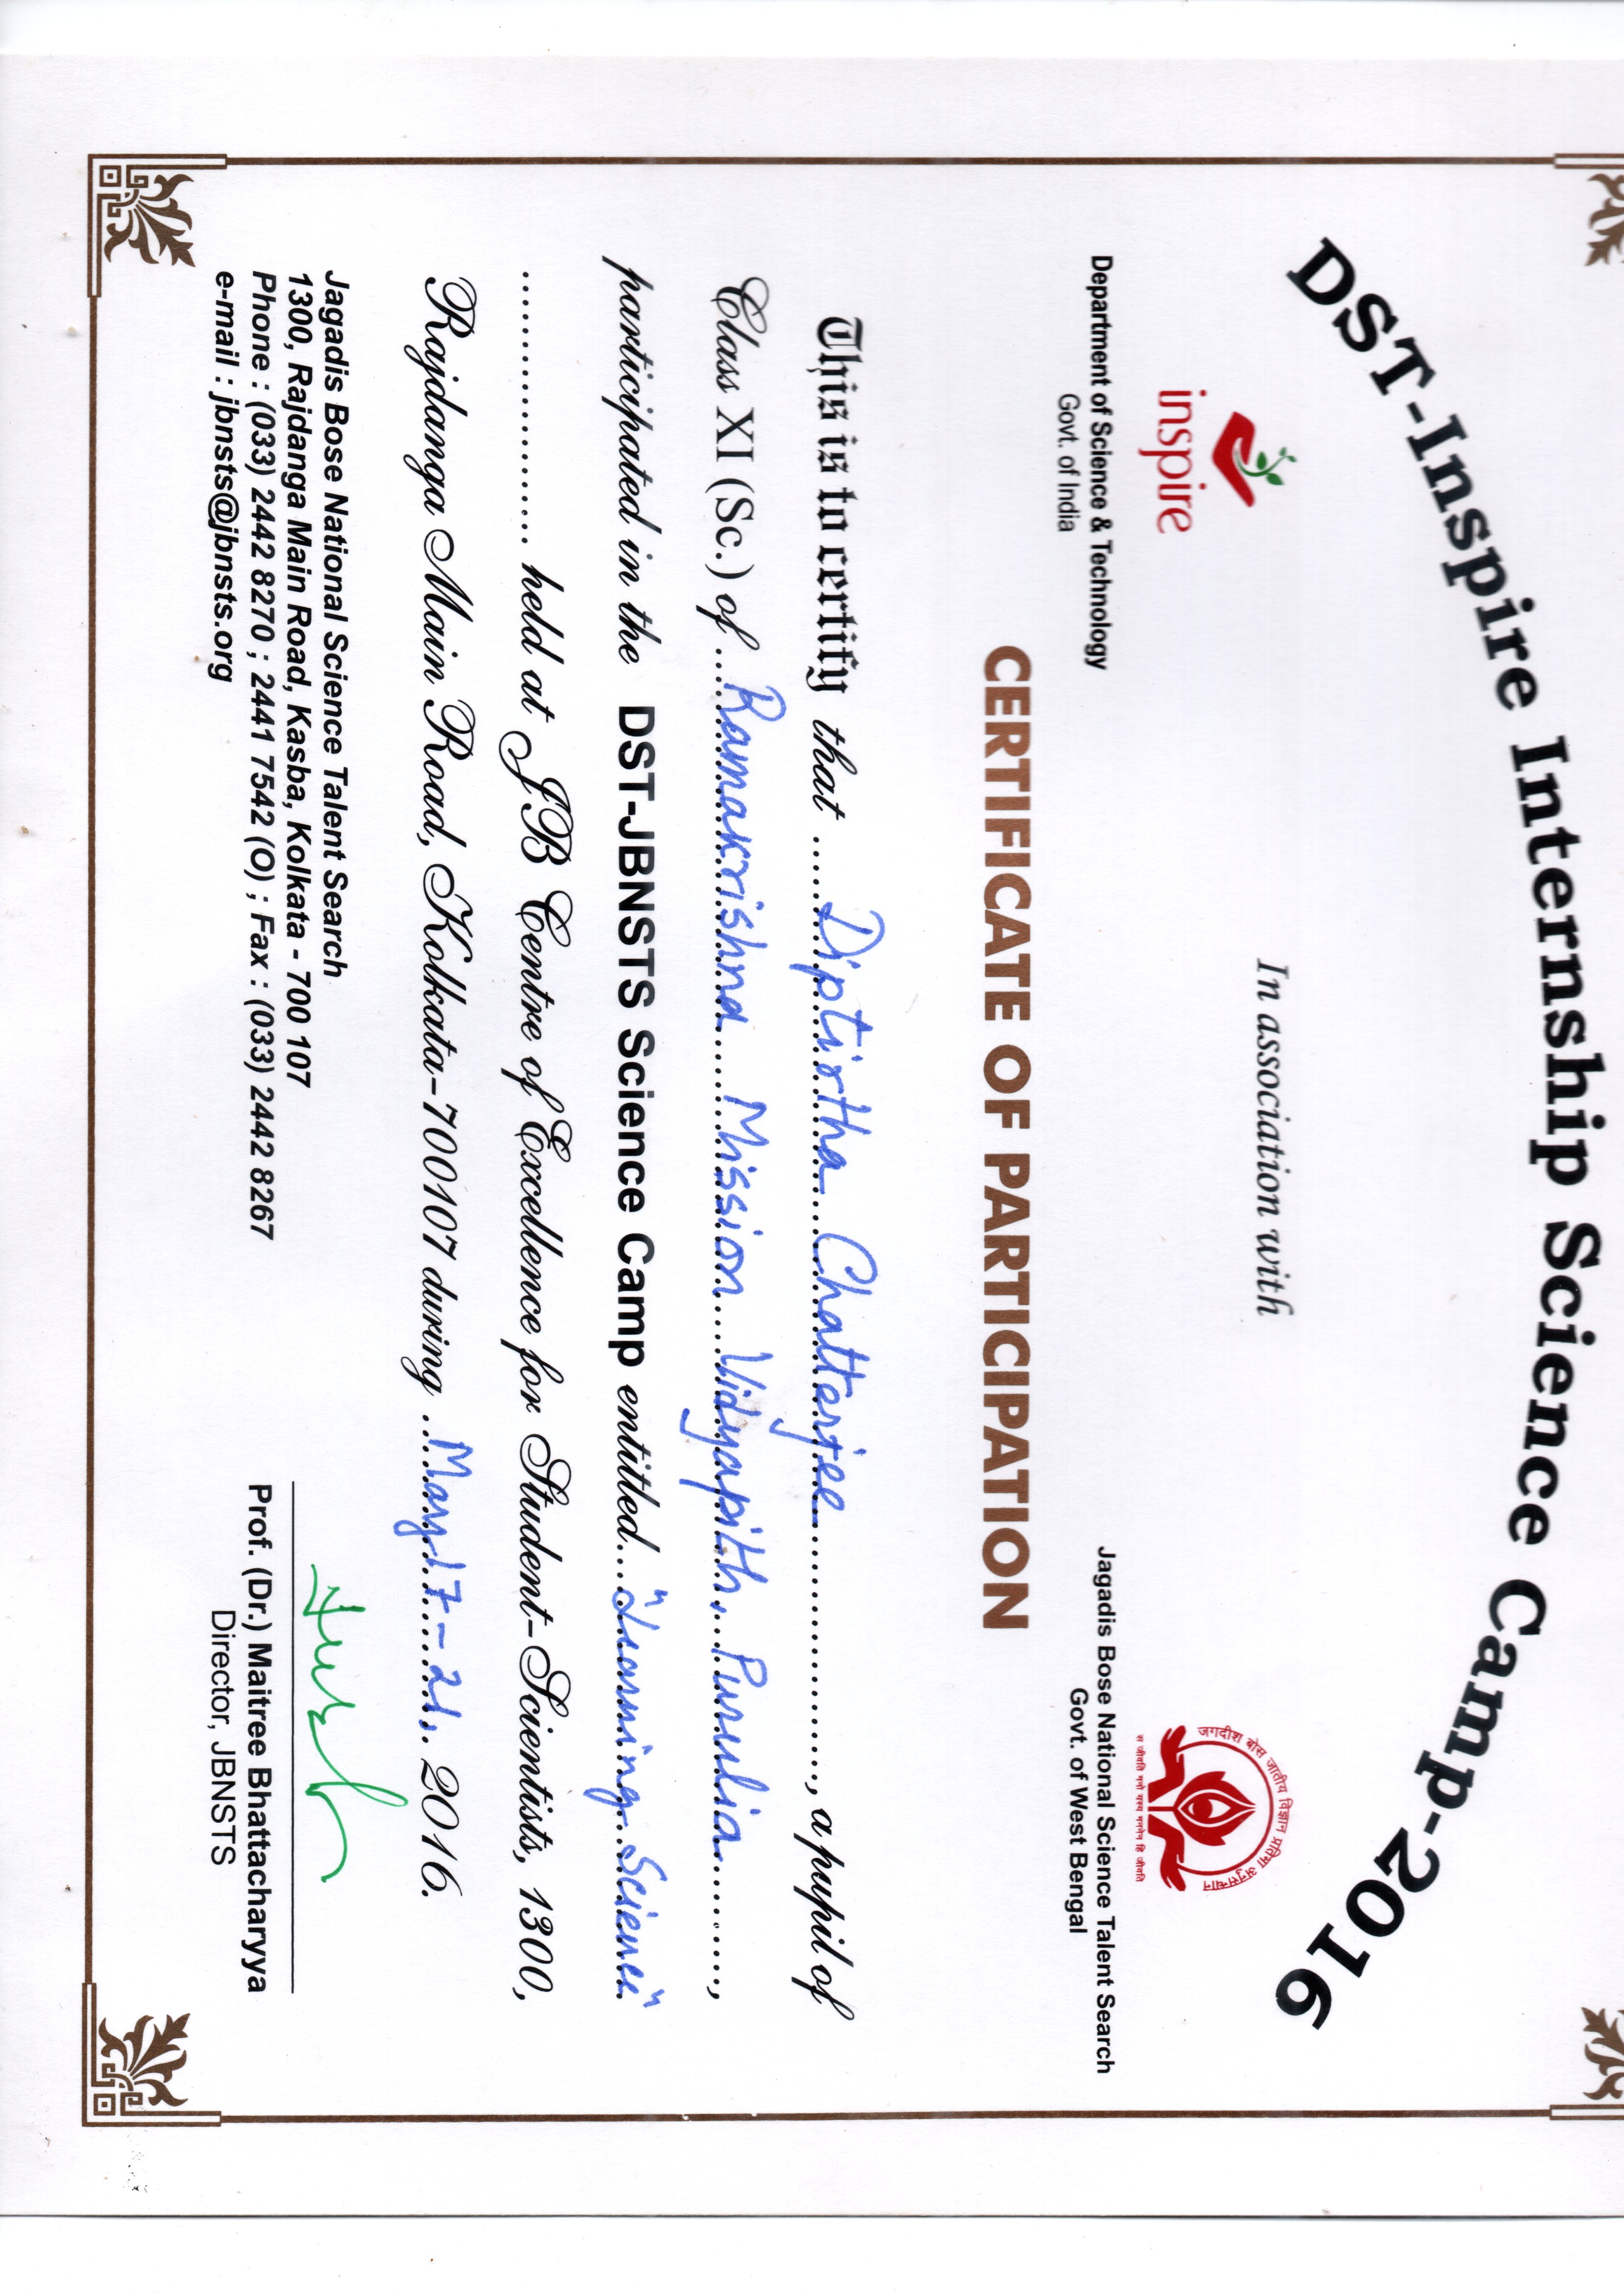 DST-Inspire Internship Science Camp-2016
In association with
inspire
Department of Science & Technology
Govt. of India
जगदीश बोस जातीय विज्ञान प्रतिभा अनुसन्धान
स जीवति मनो यस्य मननेन हि जीवति
Jagadis Bose National Science Talent Search
Govt. of West Bengal
CERTIFICATE OF PARTICIPATION
This is to certify that Diptirtha Chatterjee, a pupil of
Class XI (Sc.) of Ramakrishna Mission Vidyapith, Purulia,
participated in the DST-JBNSTS Science Camp entitled "Learning Science"
held at JB Centre of Excellence for Student-Scientists, 1300,
Rajdanga Main Road, Kolkata-700107 during May 17-21, 2016.
Jagadis Bose National Science Talent Search
1300, Rajdanga Main Road, Kasba, Kolkata - 700 107
Phone : (033) 2442 8270 ; 2441 7542 (O) ; Fax : (033) 2442 8267
e-mail : jbnsts@jbnsts.org
Prof. (Dr.) Maitree Bhattacharyya
Director, JBNSTS